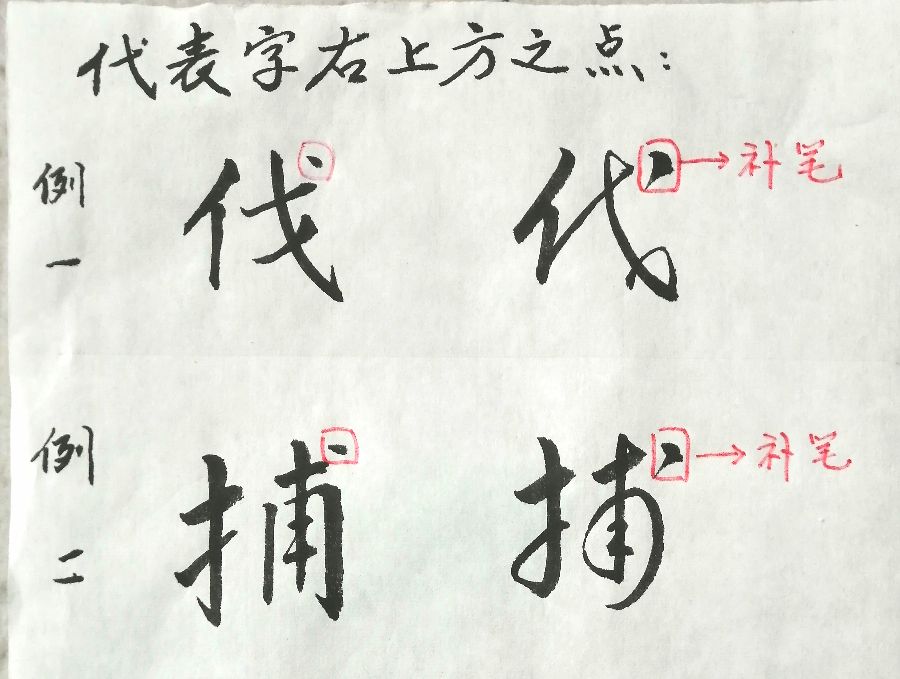 代表字右上方之点：
例一
伐 伐 补笔
例二
捕 捕 补笔